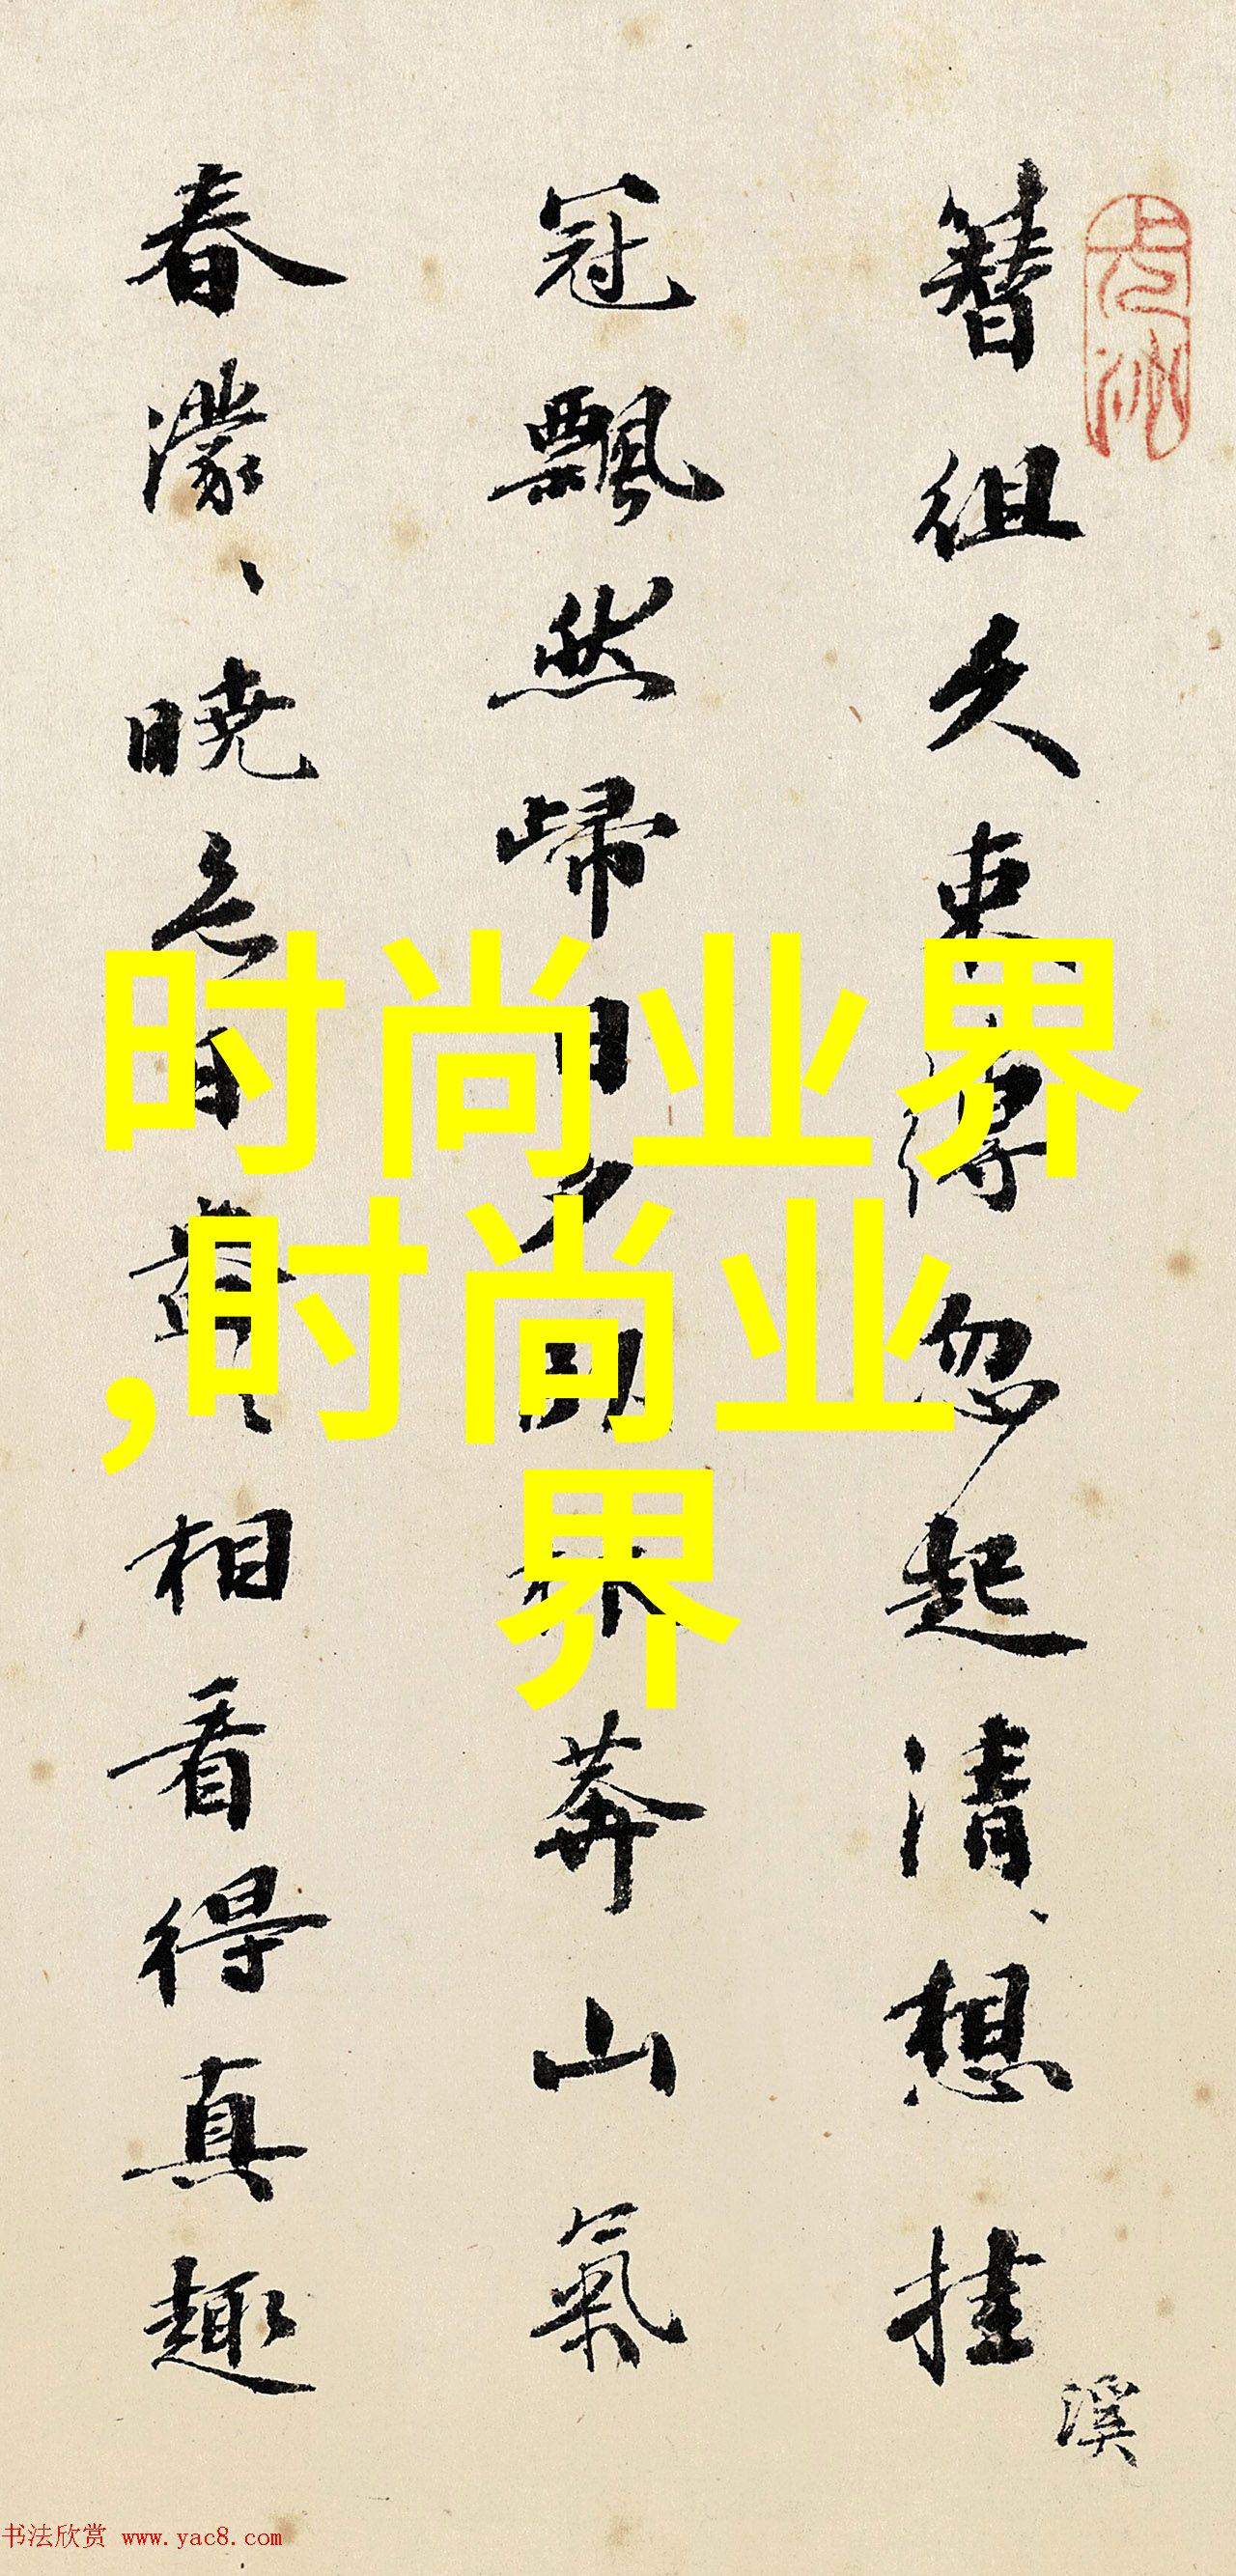 簪组久束得忽起清、想挂
冠飘然歸日夕
莽山氣
春濛、、曉色日
相看得真趣
溪
时尚业界
,时尚业
界
书法欣赏 www.yac8.com